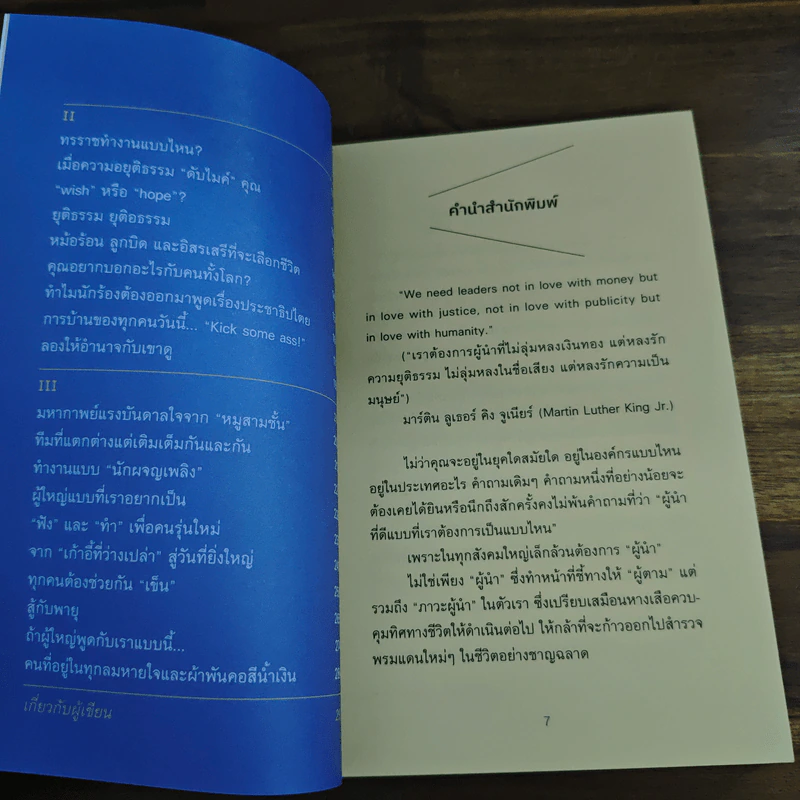 II
ทรราชทำงานแบบไหน?
เมื่อความอยุติธรรม "ดับไมค์" คุณ
"wish" หรือ "hope"?
ยุติธรรม ยุติอธรรม
หม้อร้อน ลูกบิด และอิสรเสรีที่จะเลือกชีวิต
คุณอยากบอกอะไรกับคนทั้งโลก?
ทำไมนักร้องต้องออกมาพูดเรื่องประชาธิปไตย
การบ้านของทุกคนวันนี้... "Kick some ass!"
ลองให้อำนาจกับเขาดู
III
มหากาพย์แรงบันดาลใจจาก "หมูสามชั้น"
ทีมที่แตกต่างแต่เติมเต็มกันและกัน
ทำงานแบบ "นักผจญเพลิง"
ผู้ใหญ่แบบที่เราอยากเป็น
"ฟัง" และ "ทำ" เพื่อคนรุ่นใหม่
จาก "เก้าอี้ที่ว่างเปล่า" สู่วันที่ยิ่งใหญ่
ทุกคนต้องช่วยกัน "เข็น"
สู้กับพายุ
ถ้าผู้ใหญ่พูดกับเราแบบนี้...
คนที่อยู่ในทุกลมหายใจและผ้าพันคอสีน้ำเงิน
เกี่ยวกับผู้เขียน
คำนำสำนักพิมพ์
"We need leaders not in love with money but
in love with justice, not in love with publicity but
in love with humanity."
("เราต้องการผู้นำที่ไม่ลุ่มหลงเงินทอง แต่หลงรัก
ความยุติธรรม ไม่ลุ่มหลงในชื่อเสียง แต่หลงรักความเป็น
มนุษย์")
มาร์ติน ลูเธอร์ คิง จูเนียร์ (Martin Luther King Jr.)
ไม่ว่าคุณจะอยู่ในยุคใดสมัยใด อยู่ในองค์กรแบบไหน
อยู่ในประเทศอะไร คำถามเดิมๆ คำถามหนึ่งที่อย่างน้อยจะ
ต้องเคยได้ยินหรือนึกถึงสักครั้งคงไม่พ้นคำถามที่ว่า "ผู้นำ
ที่ดีแบบที่เราต้องการเป็นแบบไหน"
เพราะในทุกสังคมใหญ่เล็กล้วนต้องการ "ผู้นำ"
ไม่ใช่เพียง "ผู้นำ" ซึ่งทำหน้าที่ชี้ทางให้ "ผู้ตาม" แต่
รวมถึง "ภาวะผู้นำ" ในตัวเรา ซึ่งเปรียบเสมือนหางเสือควบ-
คุมทิศทางชีวิตให้ดำเนินต่อไป ให้กล้าที่จะก้าวออกไปสำรวจ
พรมแดนใหม่ๆ ในชีวิตอย่างชาญฉลาด
7